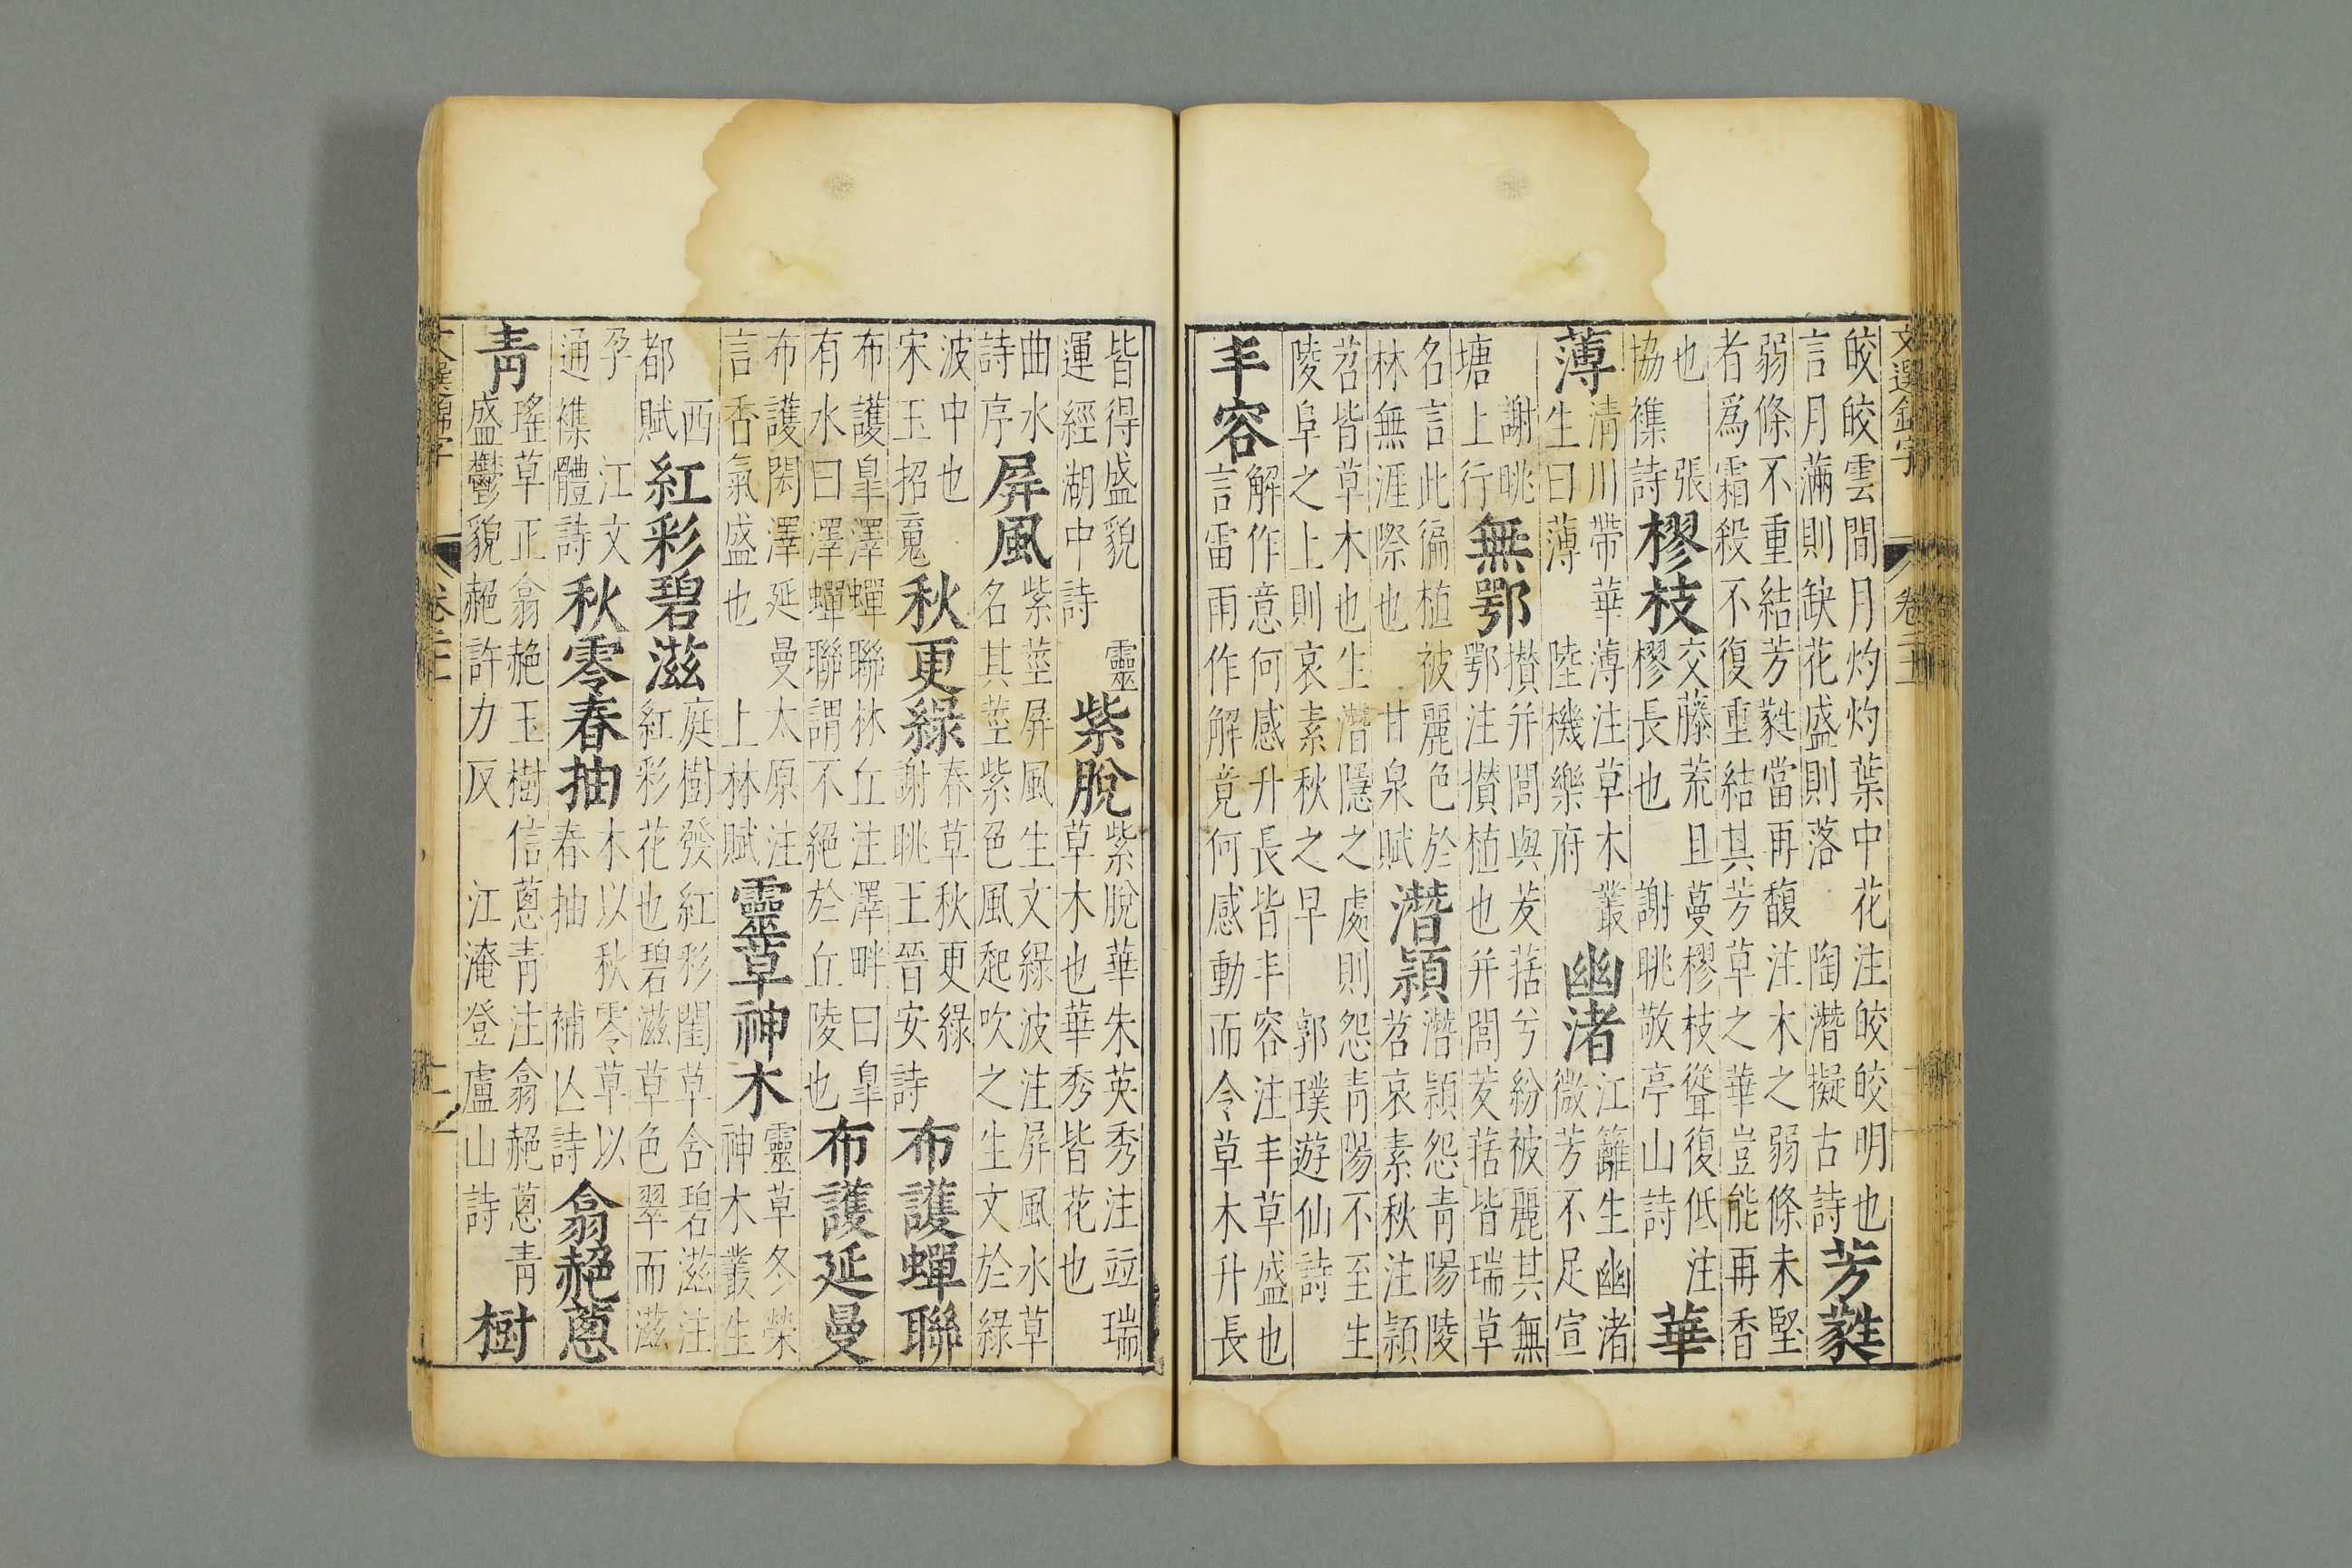 文選錦字 卷二十
皎皎雲間月灼灼葉中花注皎皎明也
言月滿則缺花盛則落 陶潛擬古詩
芳蕤
弱條不重結芳蕤當再馥注木之弱條未堅
者爲霜殺不復重結其芳草之華豈能再香
也 張
協襍詩
樛枝
交藤荒且蔓樛枝聳復低注
樛長也 謝眺敬亭山詩
華
薄
清川帶華薄注草木叢
生曰薄 陸機樂府
幽渚
江蘺生幽渚
微芳不足宣
謝眺
塘上行
無鄂
攅并閭與茇葀兮紛被麗其無
鄂注攅植也并閭茇葀皆瑞草
名言此徧植被麗色於
林無涯際也 甘泉賦
潛穎
潛穎怨青陽陵
苕哀素秋注穎
苕皆草木也生潛隱之處則怨青陽不至生
陵阜之上則哀素秋之早 郭璞遊仙詩
丰容
解作意何感升長皆丰容注丰草盛也
言雷雨作解竟何感動而令草木升長
皆得盛貌 靈
運經湖中詩
紫脫
紫脫華朱英秀注竝瑞
草木也華秀皆花也
曲水
詩序
屏風
紫莖屏風生文綠波注屏風水草
名其莖紫色風起吹之生文於綠
波中也
宋玉招䰟
秋更綠
春草秋更綠
謝眺王晉安詩
布護蟬聯
布護皐澤蟬聯林丘注澤畔曰皐
有水曰澤蟬聯謂不絕於丘陵也
布護延曼
布護閎澤延曼太原注
言香氣盛也 上林賦
靈草神木
靈草冬榮
神木叢生
西
都賦
紅彩碧滋
庭樹發紅彩閨草含碧滋注
紅彩花也碧滋草色翠而滋
孕 江文
通襍體詩
秋零春抽
木以秋零草以
春抽 補亾詩
翕赩蔥
青
瑤草正翕赩玉樹信蔥青注翕赩蔥青
盛鬱貌赩許力反 江淹登廬山詩
樹